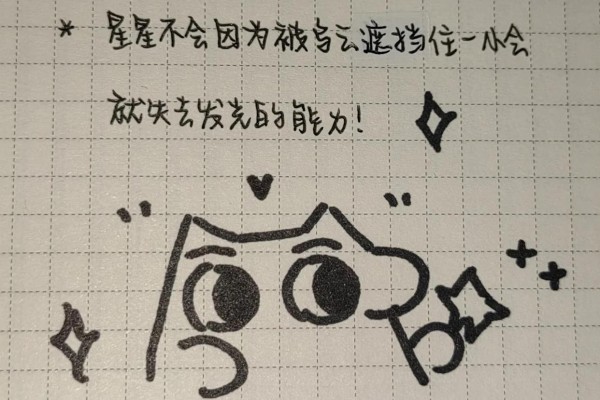 * 星星不会因为被乌云遮挡住一小会
就失去发光的能力！